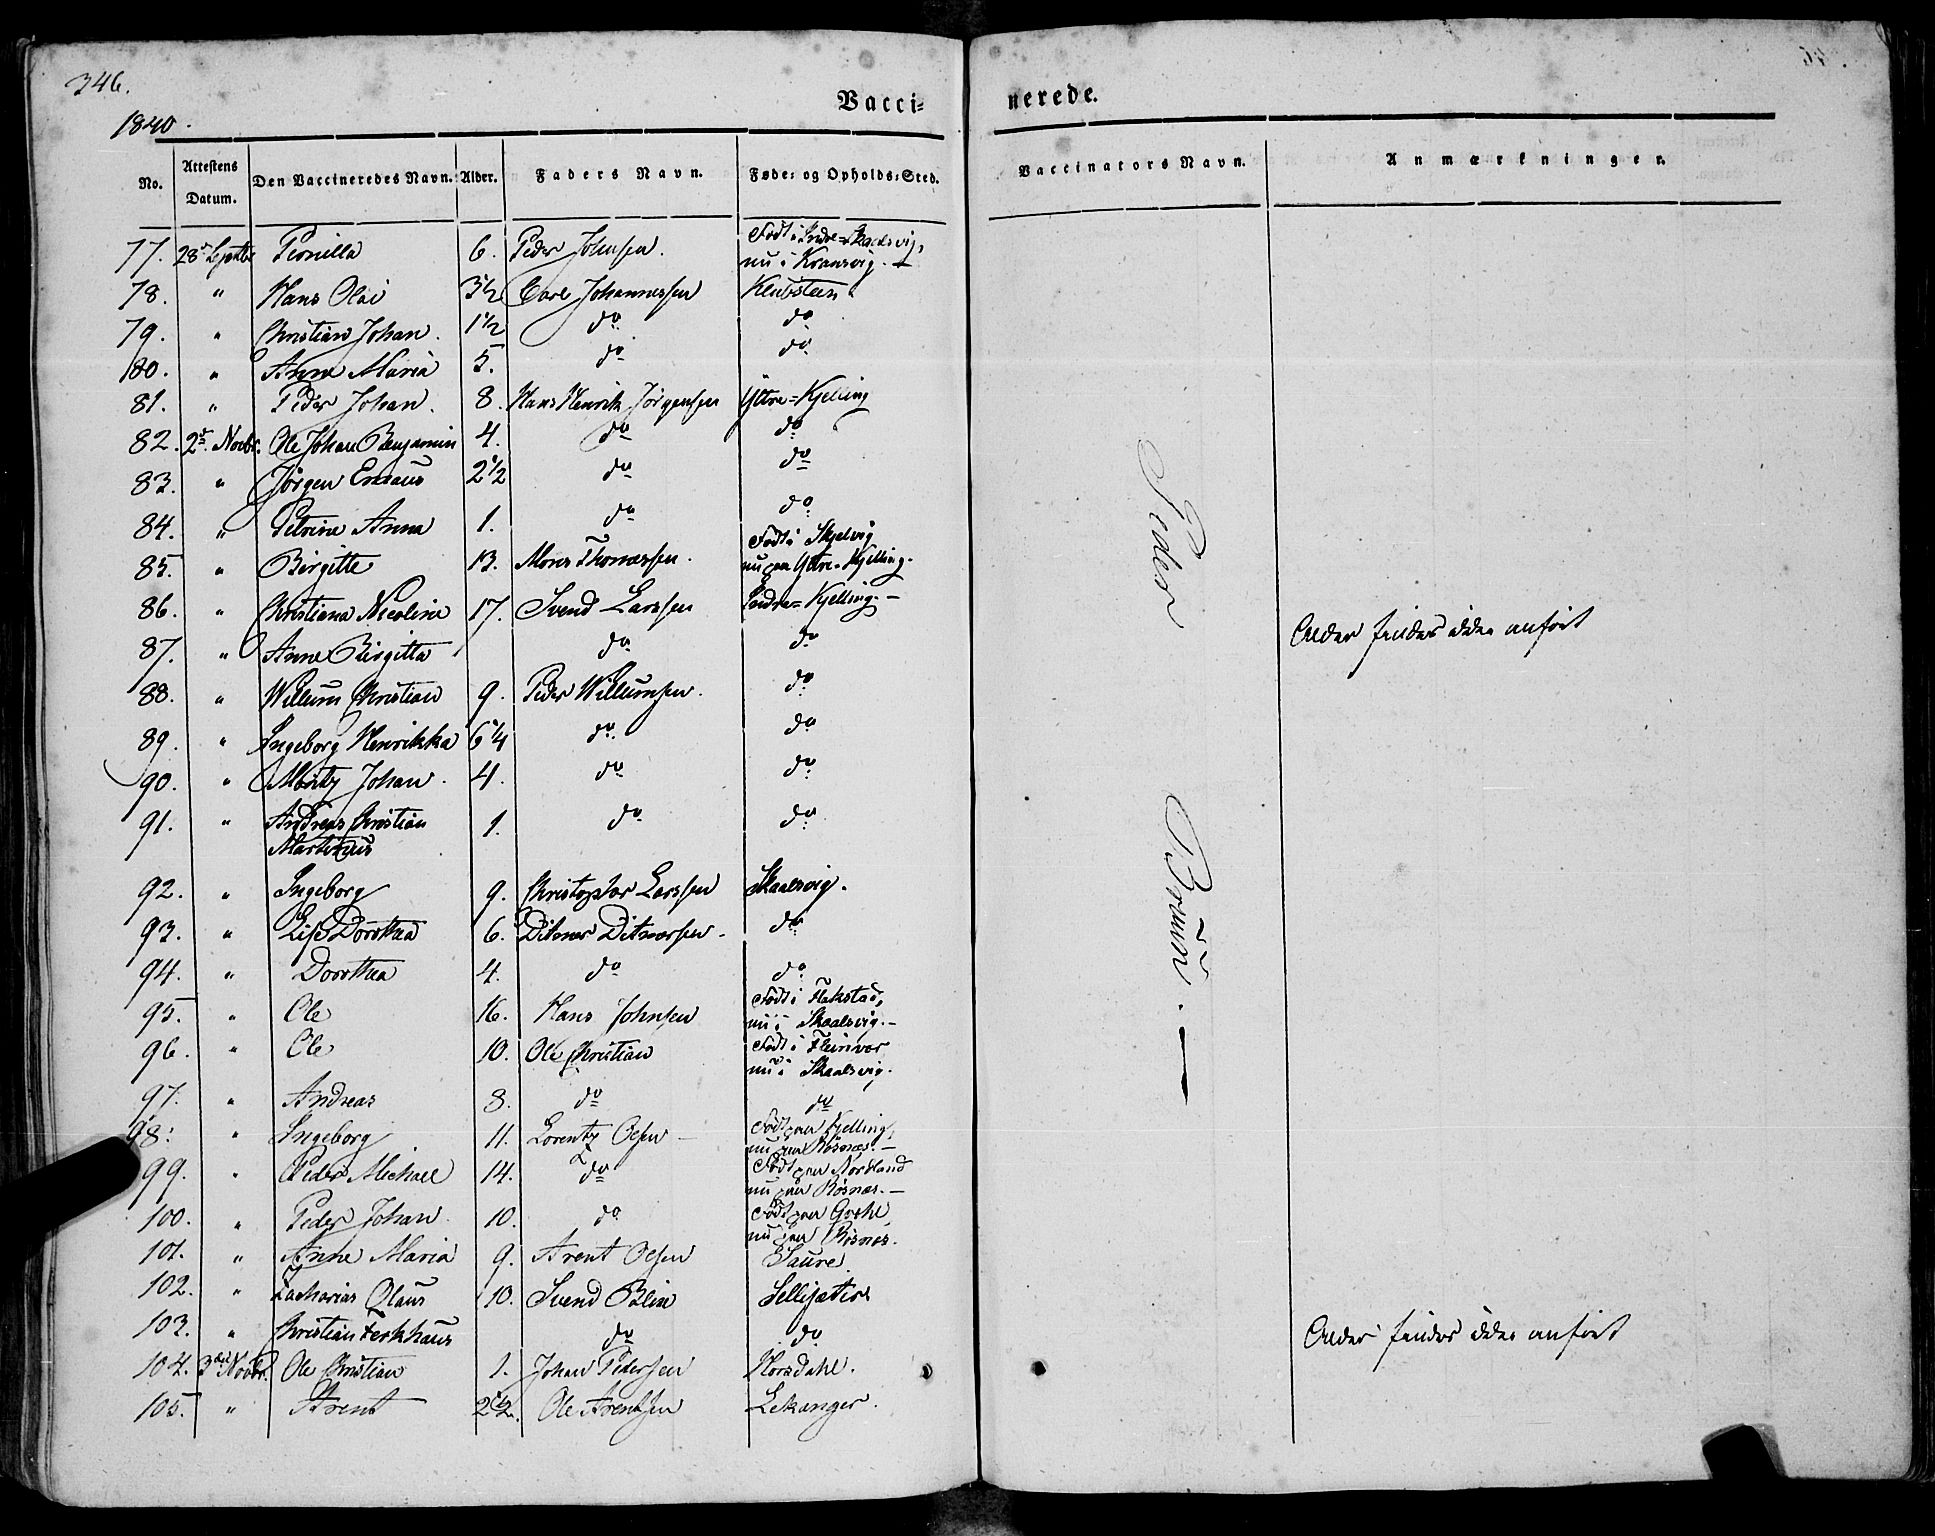 346.
1840.
Vacci-
nerede.
No. Attestens Datum. Den Vaccineredes Navn. Alder. Faders Navn. Føde- og Opholds-Sted.
Vaccinators Navn. Anmærkninger.
77. 28de Septbr Pernilla 6. Peder Johnsen. Født i Indre-Skaalsvig,
nu i Kransvig. —
78. " Hans Olai 3 1/2 Carl Johannessen Klubsteen
79. " Christian Johan. 1 1/2 do do
80. " Anne Maria 5. do do
81. " Peder Johan. 8. Hans Henrik Jørgensen Yttre-Kjelling
82. 2de Novbr. Ole Johan Benjamin 4. do do
83. " Jørgen Emaus 2 1/2 do do
84. " Petrine Anna 1. do do
85. " Birgitte 13. Mons Thomassen. Født i Skjelvig
nu paa Yttre-Kjelling.
86. " Christiana Nicolina 17. Svend Larssen Indre-Kjelling. —
87. " Anne Birgitta do do
Alder findes ikke anført
88. " Willum Christian 9. Peder Willumsen. do
89. " Ingeborg Henrikka 6 1/4 do do
90. " Moritz Johan. 4. do do
91. " Andreas Christian 1. do do
Martinus
92. " Ingeborg 9. Christopher Larssen Skaalsvig.
93. " Lise Dorothea 6. Ditmar Ditmarsen. do
94. " Dorothea 4. do do
95. " Ole 16. Hans Johnsen Født i Flakstad,
nu i Skaalsvig. —
96. " Ole 10. Ole Christian Født i Fleinvær
nu i Skaalsvig.
97. " Andreas 8. do do
98. " Ingeborg 11. Lorentz Olsen Født paa Kjelling,
nu paa Røsnæs. —
99. " Peder Michael 14. do Født paa Nordland
nu paa Røsnæs. —
100. " Peder Johan 10. do Født paa
nu paa Røsnæs.
101. " Anne Maria 9. Arent Olsen Saure.
102. " Zacharias Olaus 10. Svend Blix Sellisætre
103. " Christian do do
Alder findes ikke anført
104. 3die Novbr. Ole Christian 1. Johan Pedersen Horsdahl.
105. " Arent 2 1/2. Ole Arentsen Lekanger.
Peder Bruun. —